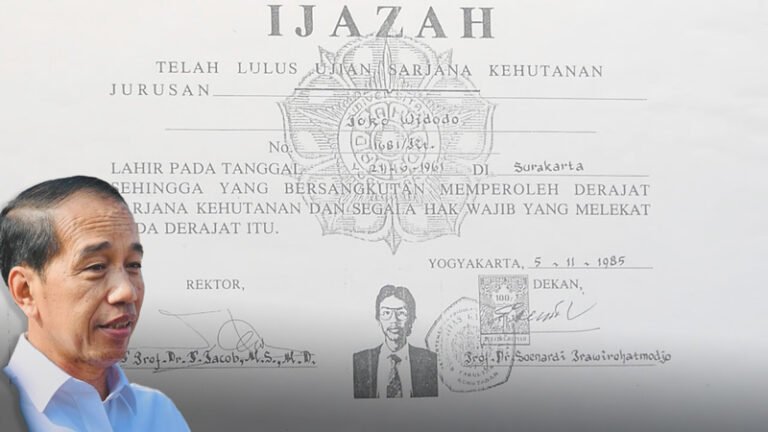 IJAZAH
TELAH LULUS UJIAN SARJANA KEHUTANAN
JURUSAN
Joko Widodo
No. 1681/Kt.
LAHIR PADA TANGGAL 21-6-1961 DI Surakarta
SEHINGGA YANG BERSANGKUTAN MEMPEROLEH DERAJAT
SARJANA KEHUTANAN DAN SEGALA HAK WAJIB YANG MELEKAT
PADA DERAJAT ITU.
YOGYAKARTA, 5 - 11 - 1985
REKTOR, DEKAN,
100
Prof. Dr. T. Jacob, M.S., M.D. Prof. Dr. Soenardi Prawirohatmodjo
KEHUTANAN